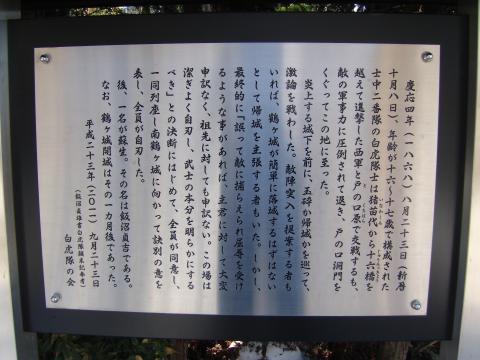 慶応四年（一八六八）八月二十三日（新暦
十月八日）、年齢が十六〜十七歳で構成された
士中二番隊の白虎隊士は猪苗代から十六橋を
越えて進撃した西軍と戸の口原で交戦するも、
敵の軍事力に圧倒されて退き、戸の口洞門を
くぐってこの地に至った。
炎上する城下を前に、玉砕か帰城かを巡って、
激論を戦わした。敵陣突入を提案する者も
いれば、鶴ヶ城が簡単に落城するはずはない
として帰城を主張する者もいた。しかし、
最終的に「誤って敵に捕らえられ屈辱を受け
るような事があれば、主君に対して大変
申訳なく、祖先に対しても申訳ない。この場は
潔ぎよく自刃し、武士の本分を明らかにする
べき」との決断にはじめて、全員が同意し、
一同列座し、南鶴ヶ城に向かって訣別の意を
表し、全員が自刃した。
後、一名が蘇生。その名は飯沼貞吉である。
なお、鶴ヶ城開城はその一カ月後であった。
平成二十三年（二〇一一）九月二十三日
（飯沼貞雄書白虎隊顛末記参考）
白虎隊の会